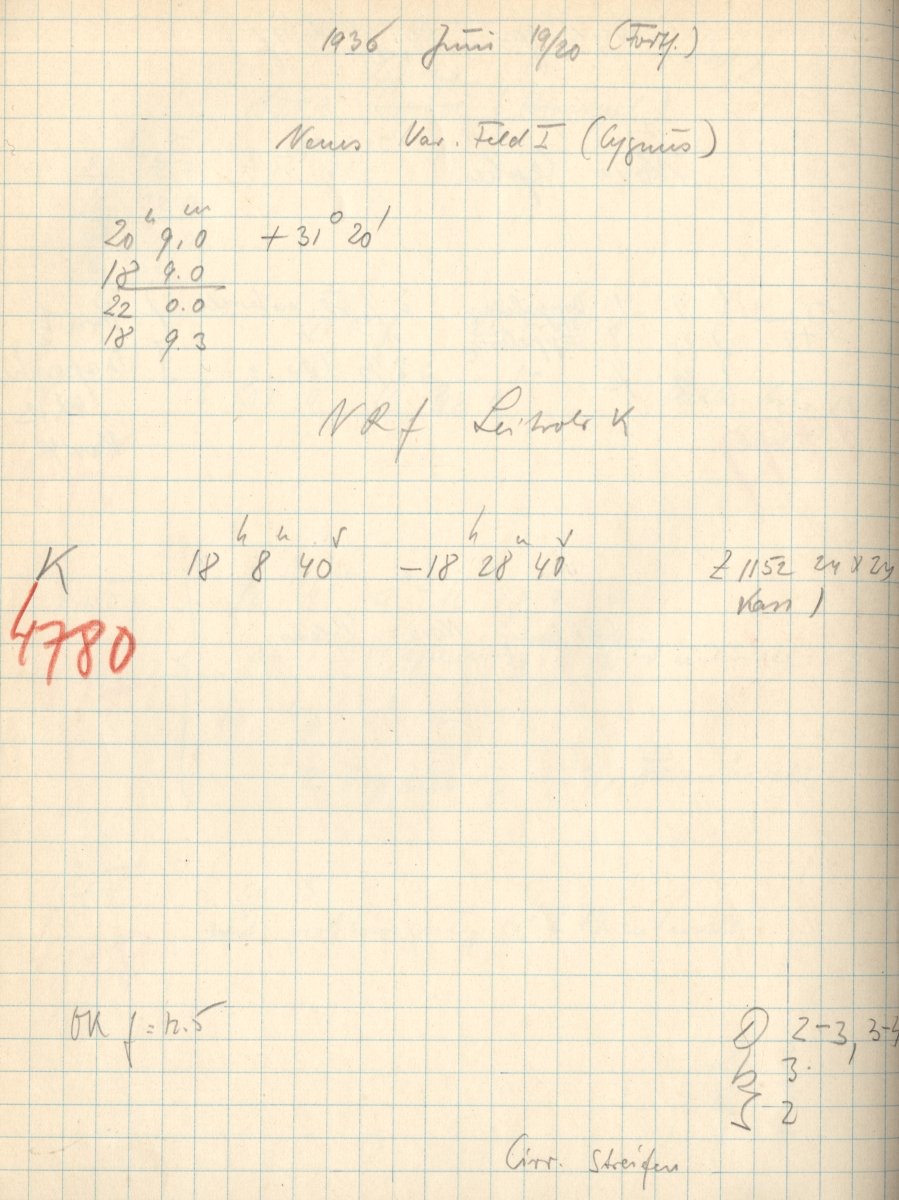 1936 Juni 19/20 (Forts.)
Neues Var. Feld I (Cygnus)
20ʰ 9,0ᵐ + 31° 20'
18 9.0
22 0.0
18 9.3
NRf K
K 18ʰ 8ᵐ 40ˢ –18ʰ 28ᵐ 40ˢ Z 1152 24 x 24
4780
Kass
f = 12.5
2-3, 3-4
3
2
Cirr. Streifen